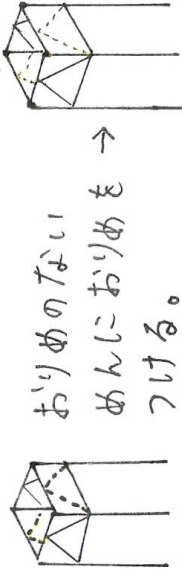 おりめのない
めんにおりめを
つける。
→